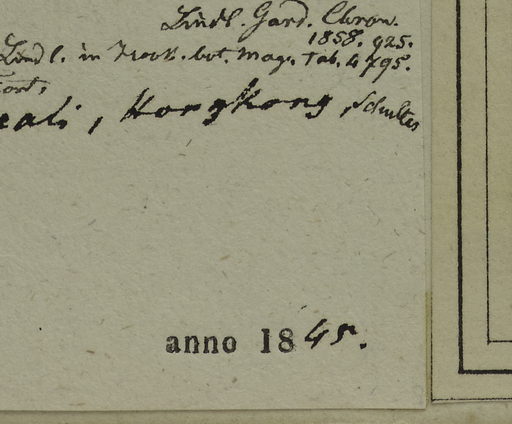 Lindl. Gard. Chron.
1858. 925.
Lindl. in Hook. bot. Mag. Tab. 4795.
Fort.
eali, Hongkong, Schultes
anno 1845.